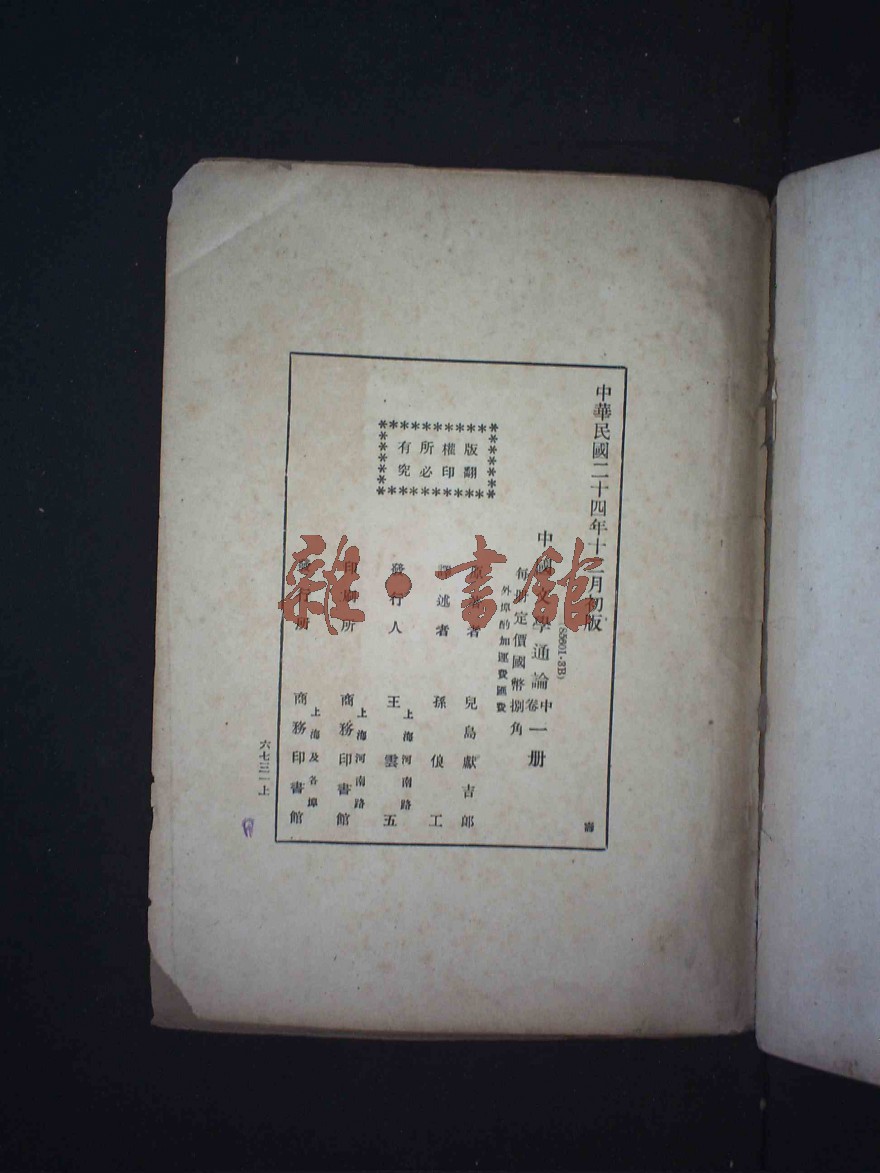 中華民國二十四年十二月初版
(58501·3B)
中國文學通論 中卷 一册
每册定價國幣捌角
外埠酌加運費匯費
版權所有
翻印必究
原著者 兒島獻吉郎
譯述者 孫俍工
發行人 王雲五
上海河南路
印刷所 商務印書館
上海河南路
發行所 商務印書館
上海及各埠
六七三一上
壽
雜·書館